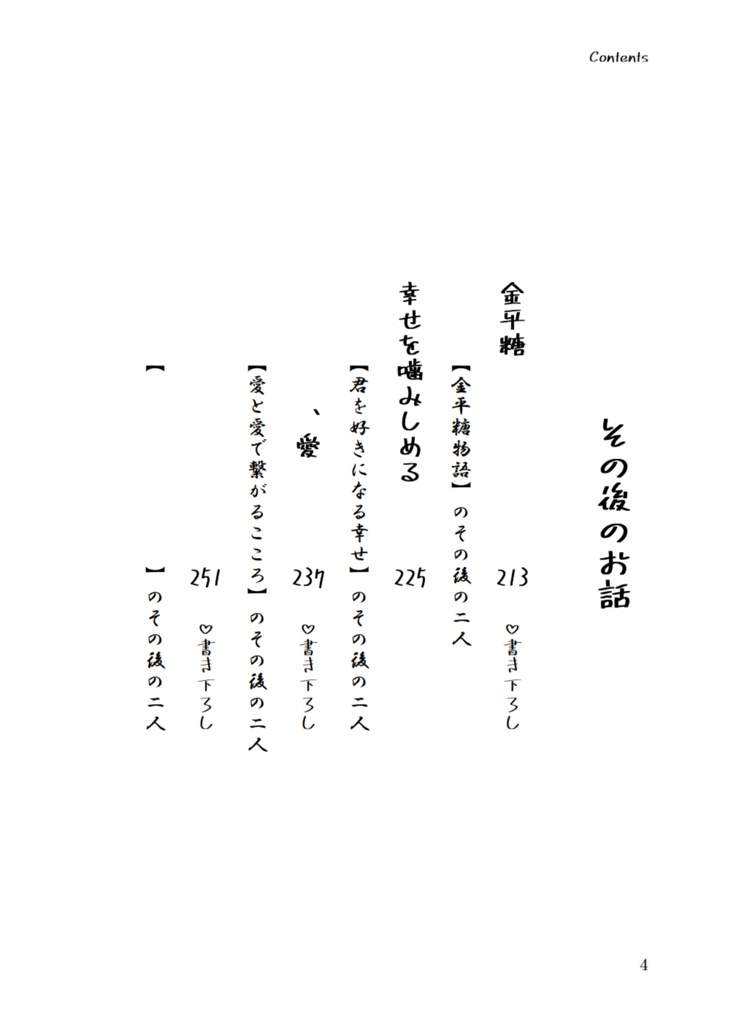 Contents
その後のお話
金平糖 213 ♡書き下ろし
【金平糖物語】のその後の二人
幸せを噛みしめる 225
【君を好きになる幸せ】のその後の二人
、愛 237 ♡書き下ろし
【愛と愛で繋がるこころ】のその後の二人
251 ♡書き下ろし
【 】のその後の二人
4